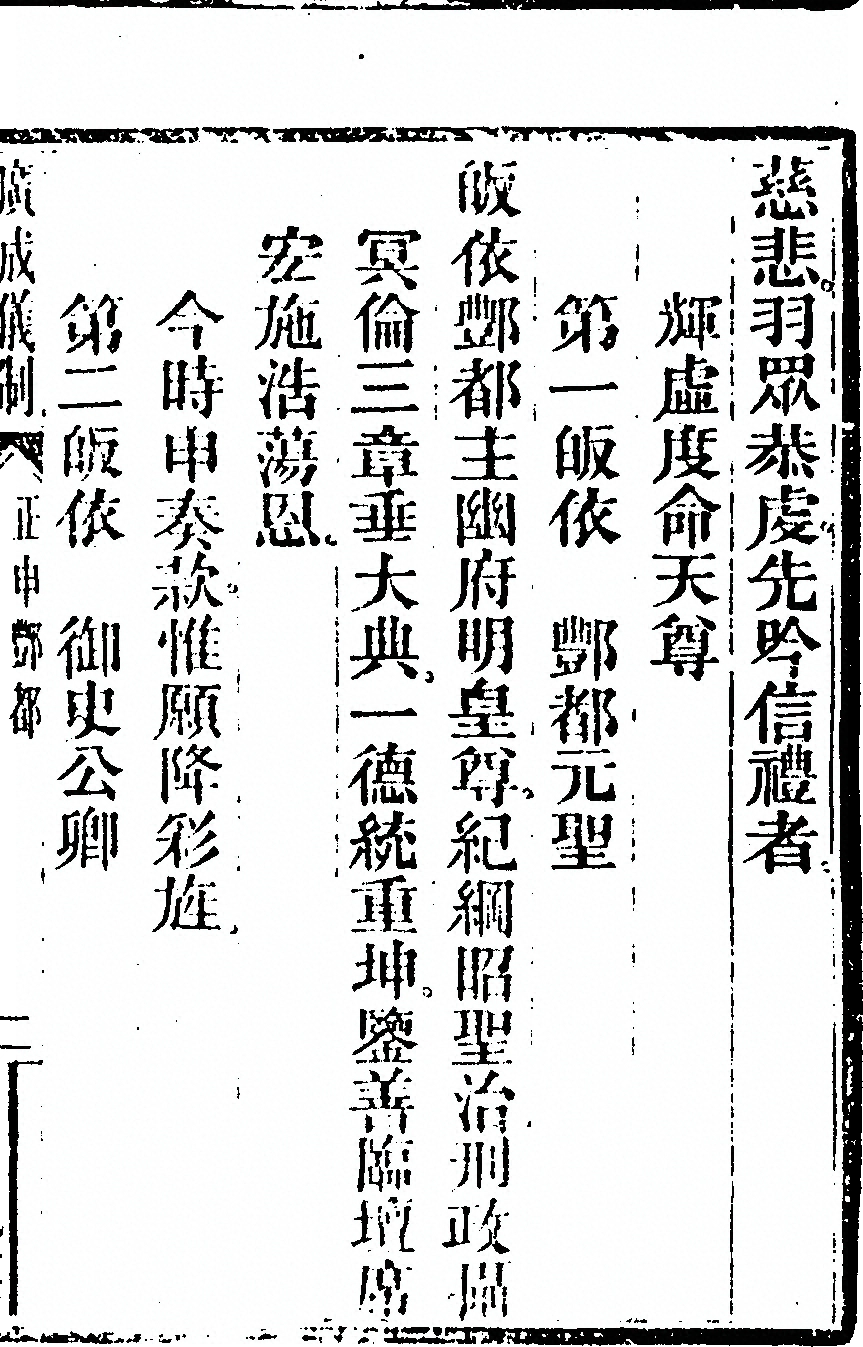 慈悲羽眾恭虔先吟信禮者
輝虛度命天尊
第一皈依　酆都元聖
皈依酆都主幽府明皇尊紀綱昭聖治刑政攝
冥倫三章垂大典一德統重坤鑒善臨壇席
宏施浩蕩恩
今時申奏款惟願降彩旌
第二皈依　御史公卿
廣成儀制　正申酆都　二